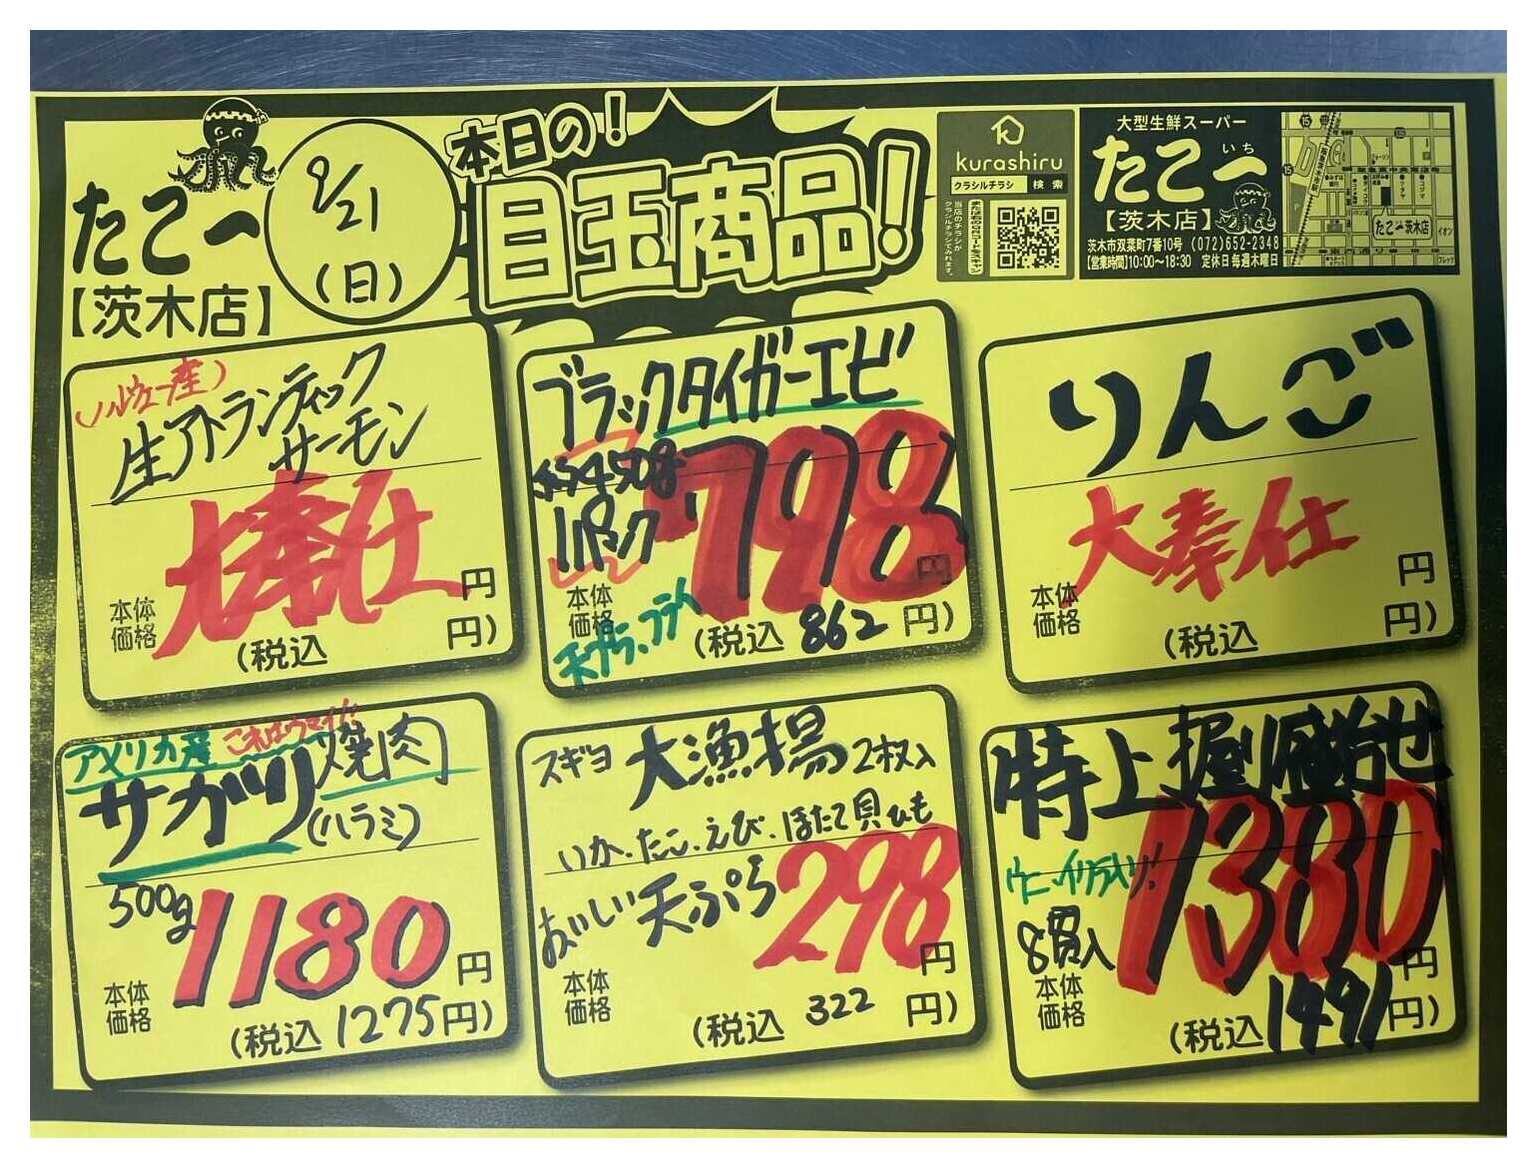 たこ一
【茨木店】
9/21
(日)
本日の!
目玉商品!
kurashiru
クラシルチラシ 検索
当店のチラシが
クラシルチラシでみれます。
大型生鮮スーパー
たこ一
いち
【茨木店】
茨木市双葉町7番10号 (072)652-2348
【営業時間】10:00〜18:30 定休日 毎週木曜日
たこ一茨木店
イオン
(ノルウェー産)
生アトランティック
サーモン
大奉仕
本体
価格
円
(税込 円)
ブラックタイガーエビ
1パック
798
本体
価格
円
天ぷら、フライ
(税込 862 円)
りんご
大奉仕
本体
価格
円
(税込 円)
アメリカ産 これはウマイ!!
サガリ焼肉
(ハラミ)
500g
1180
本体
価格
円
(税込 1275円)
スギヨ 大漁揚 2枚入
いか、たこ、えび、ほたて貝ひも
おいしい天ぷら
298
本体
価格
円
(税込 322 円)
特上握り盛合せ
8貫入
1380
本体
価格
円
(税込 1491円)